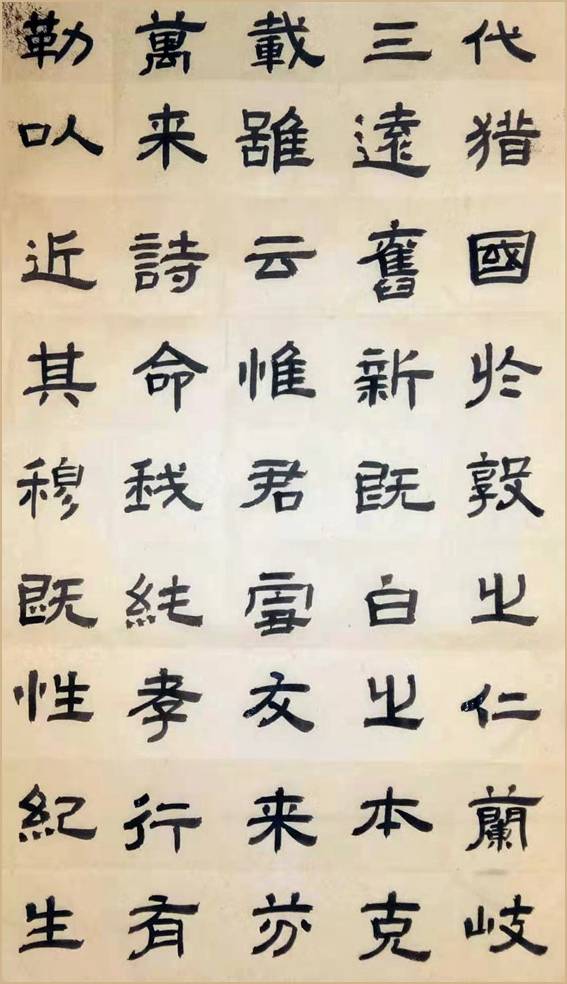 代猎國於敦之仁蘭岐
三遠舊新既白之本克
載雖云惟君雪友来芬
萬来詩命我純孝行有
勒以近其穆既性紀生